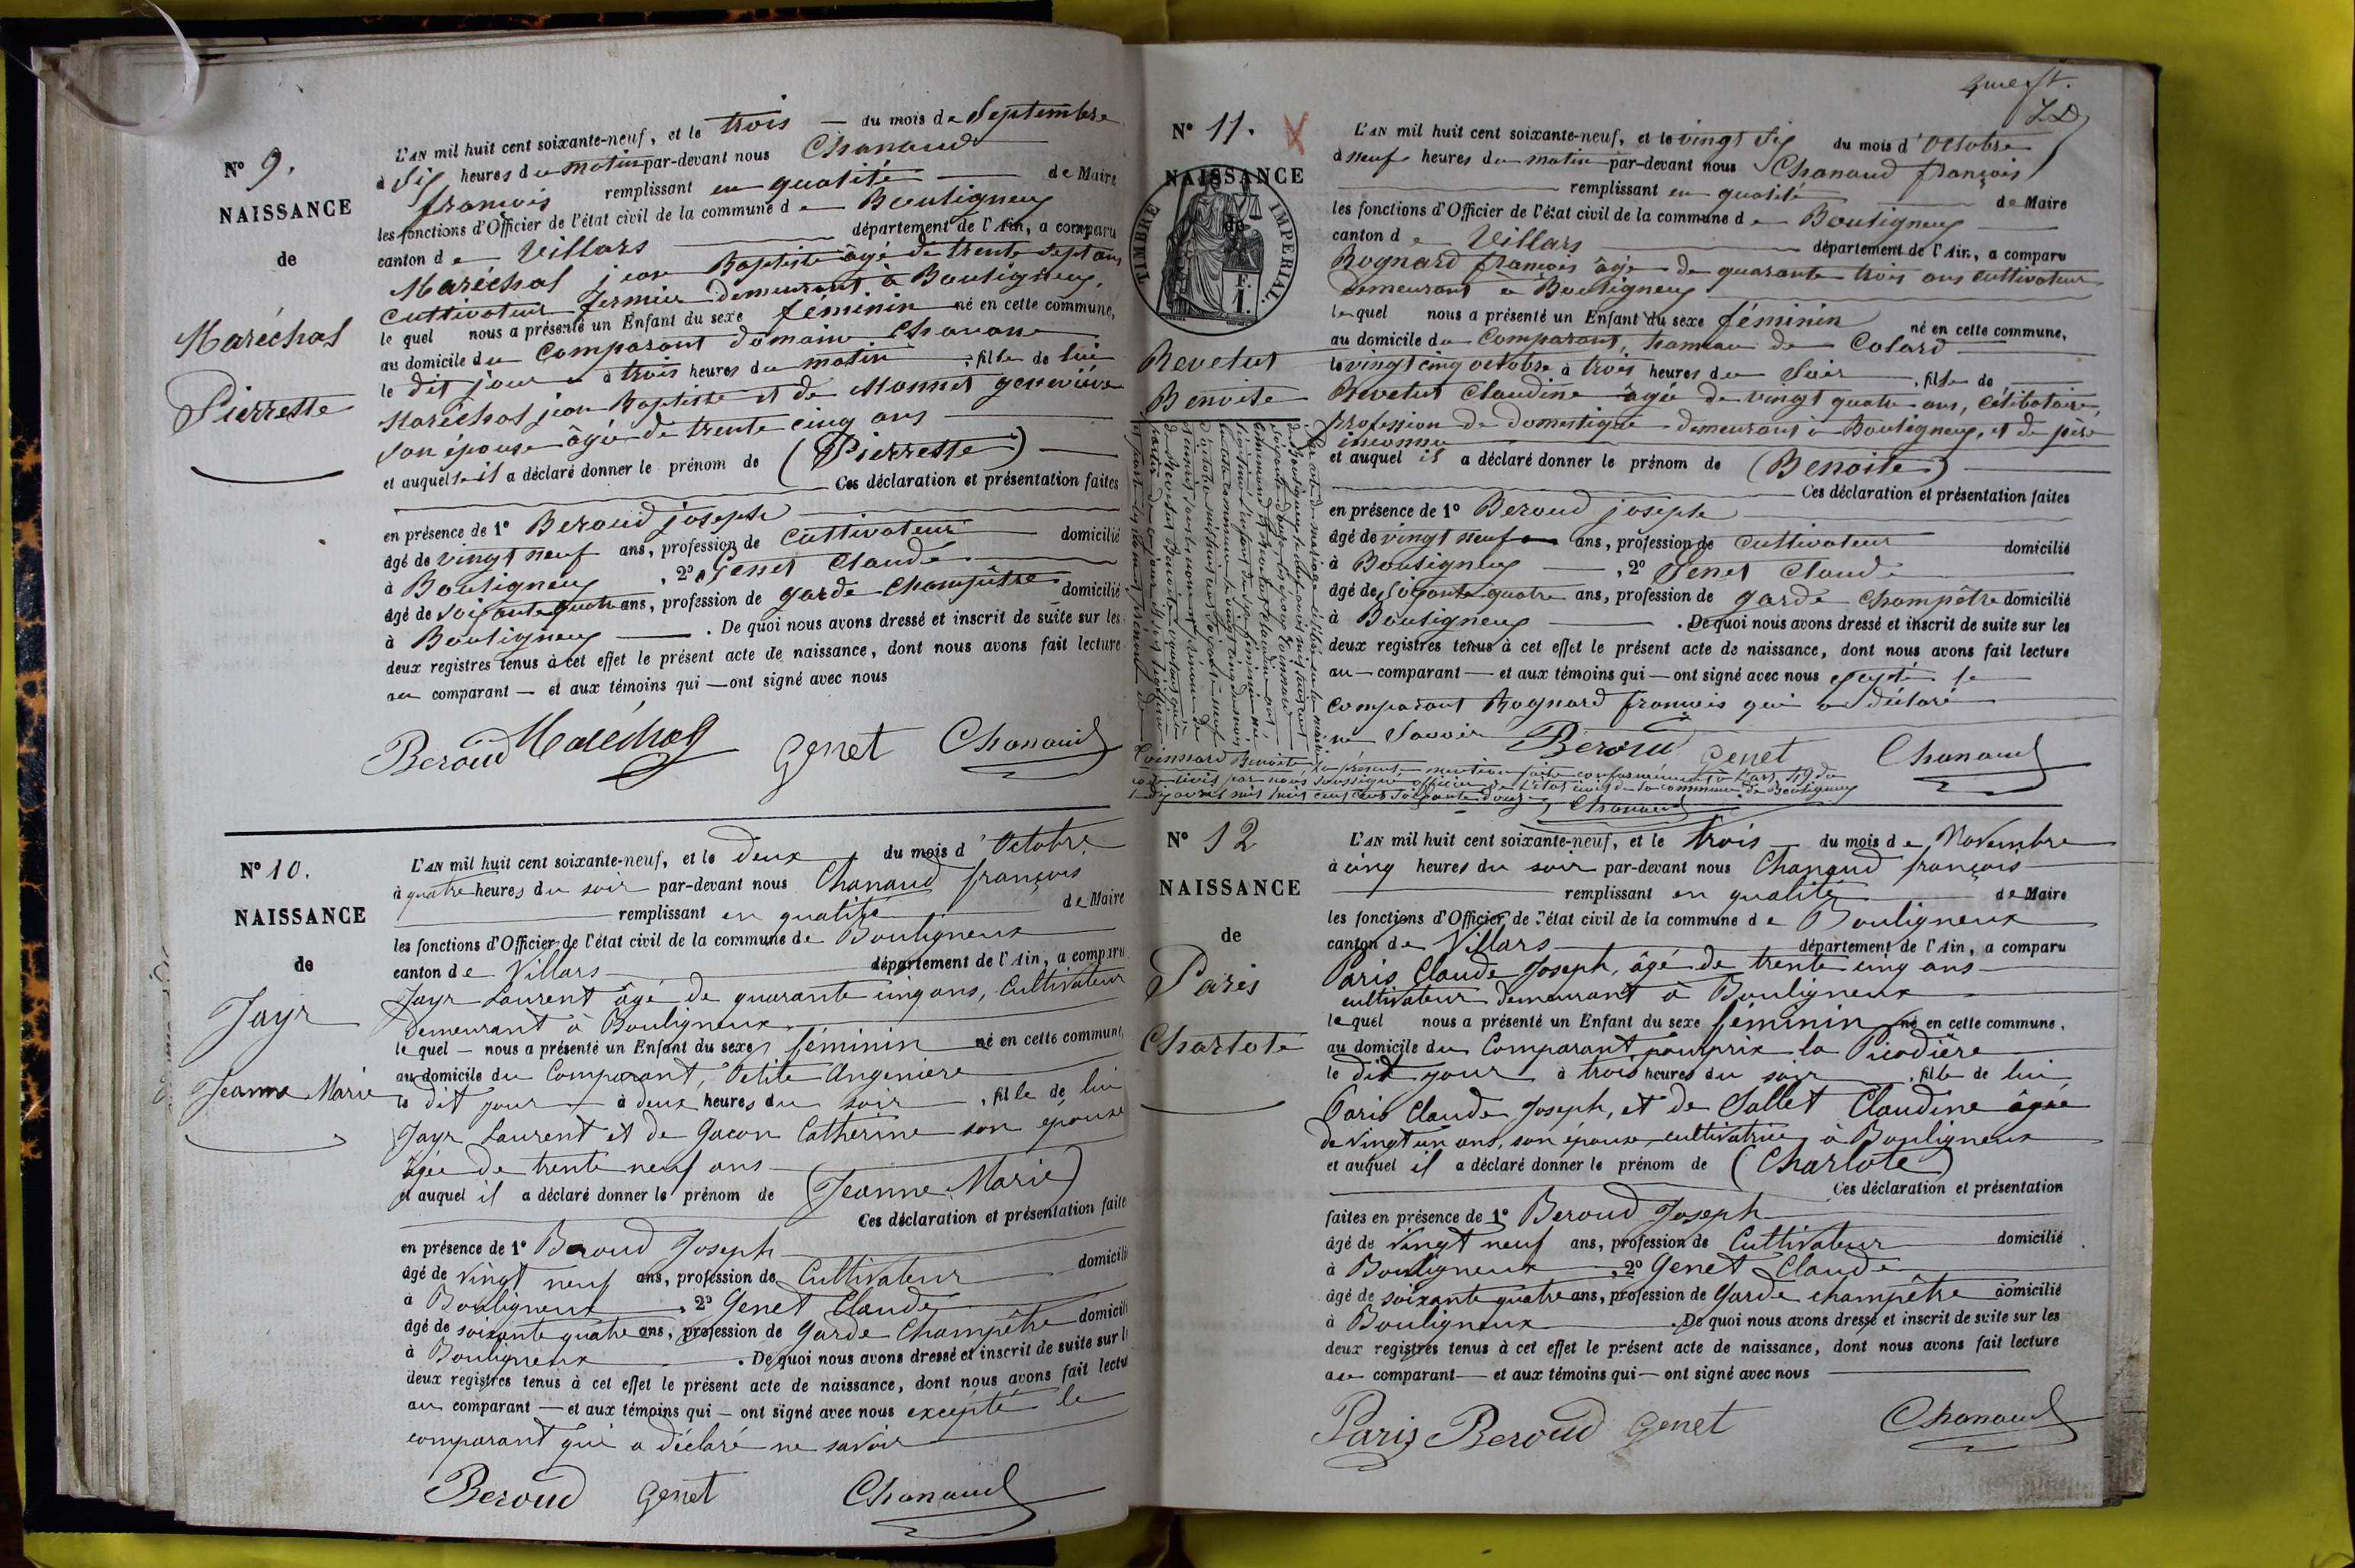 N° 9.
NAISSANCE
de
Maréchal
Pierrette
L'AN mil huit cent soixante-neuf, et le trois du mois de Septembre
à Six heures du matin par-devant nous Chanaud
françois remplissant en qualité de Maire
les fonctions d'Officier de l'état civil de la commune de Bouligneux
canton de Villars département de l'Ain, a comparu
Maréchal jean Baptiste âgé de trente sept ans
cultivateur fermier demeurant à Bouligneux,
le quel nous a présenté un Enfant du sexe féminin né en cette commune,
au domicile du Comparant domaine Chavane
le dit jour à trois heures du matin, fille de lui
Maréchal jean Baptiste et de Monnet geneviève
son épouse âgée de trente cinq ans
et auquelle il a déclaré donner le prénom de (Pierrette)
Ces déclaration et présentation faites
en présence de 1° Beroud joseph
âgé de vingt neuf ans, profession de Cultivateur domicilié
à Bouligneux, 2° Genet Claude
âgé de soixante quatre ans, profession de garde Champêtre domicilié
à Bouligneux. De quoi nous avons dressé et inscrit de suite sur les
deux registres tenus à cet effet le présent acte de naissance, dont nous avons fait lecture
au comparant et aux témoins qui ont signé avec nous
Beroud Maréchal Genet Chanaud
N° 10.
NAISSANCE
de
Jayr
Jeanne Marie
L'AN mil huit cent soixante-neuf, et le deux du mois d'Octobre
à quatre heures du soir par-devant nous Chanaud françois
remplissant en qualité de Maire
les fonctions d'Officier de l'état civil de la commune de Bouligneux
canton de Villars département de l'Ain, a comparu
Jayr Laurent âgé de quarante cinq ans, Cultivateur
demeurant à Bouligneux
le quel nous a présenté un Enfant du sexe féminin né en cette commune,
au domicile du Comparant, Petite Angenière
le dit jour à deux heures du soir, fille de lui
Jayr Laurent et de Gacon Catherine son épouse
âgée de trente neuf ans
et auquel il a déclaré donner le prénom de (Jeanne Marie)
Ces déclaration et présentation faite
en présence de 1° Beroud Joseph
âgé de vingt neuf ans, profession de Cultivateur domicilié
à Bouligneux, 2° Genet Claude
âgé de soixante quatre ans, profession de Garde Champêtre domicilié
à Bouligneux. De quoi nous avons dressé et inscrit de suite sur l
deux registres tenus à cet effet le présent acte de naissance, dont nous avons fait lectu
au comparant et aux témoins qui ont signé avec nous excepté le
comparant qui a déclaré ne savoir
Beroud Genet Chanaud
N° 11.
NAISSANCE
de
TIMBRE IMPÉRIAL.
F.
1.
Revetut
Benoite
L'AN mil huit cent soixante-neuf, et le vingt six du mois d'Octobre
à neuf heures du matin par-devant nous Chanaud françois
remplissant en qualité de Maire
les fonctions d'Officier de l'état civil de la commune de Bouligneux
canton de Villars département de l'Ain, a comparu
Rognard françois âgé de quarante trois ans cultivateur
demeurant à Bouligneux
lequel nous a présenté un Enfant du sexe féminin né en cette commune,
au domicile du Comparant, hameau de Colard
le vingt cinq octobre à trois heures du soir, fille de
Revetut Claudine âgée de vingt quatre ans, célibataire,
profession de domestique demeurant à Bouligneux, et de père
inconnu
et auquel il a déclaré donner le prénom de (Benoite)
Ces déclaration et présentation faites
en présence de 1° Beroud joseph
âgé de vingt neuf ans, profession de Cultivateur domicilié
à Bouligneux, 2° Genet Claude
âgé de soixante quatre ans, profession de garde Champêtre domicilié
à Bouligneux. De quoi nous avons dressé et inscrit de suite sur les
deux registres tenus à cet effet le présent acte de naissance, dont nous avons fait lecture
au comparant et aux témoins qui ont signé avec nous excepté le
comparant Rognard françois qui a déclaré
ne Savoir
Beroud Genet Chanaud
Benoite, la présente mention faite conformément à
civil par nous soussigné officier de l'état civil de la commune de Bouligneux
Chanaud
N° 12
NAISSANCE
de
Paris
Charlote
L'AN mil huit cent soixante-neuf, et le trois du mois de Novembre
à cinq heures du soir par-devant nous Chanaud françois
remplissant en qualité de Maire
les fonctions d'Officier de l'état civil de la commune de Bouligneux
canton de Villars département de l'Ain, a comparu
Paris Claude Joseph, âgé de trente cinq ans
cultivateur demeurant à Bouligneux
lequel nous a présenté un Enfant du sexe féminin né en cette commune,
au domicile du Comparant pourprix la Picodière
le dit jour à trois heures du soir, fille de lui
Paris Claude Joseph, et de Sallet Claudine âgée
de vingt un ans, son épouse cultivatrice à Bouligneux
et auquel il a déclaré donner le prénom de (Charlote)
Ces déclaration et présentation
faites en présence de 1° Beroud Joseph
âgé de vingt neuf ans, profession de Cultivateur domicilié
à Bouligneux, 2° Genet Claude
âgé de soixante quatre ans, profession de Garde champêtre domicilié
à Bouligneux. De quoi nous avons dressé et inscrit de suite sur les
deux registres tenus à cet effet le présent acte de naissance, dont nous avons fait lecture
au comparant et aux témoins qui ont signé avec nous
Paris Beroud Genet Chanaud